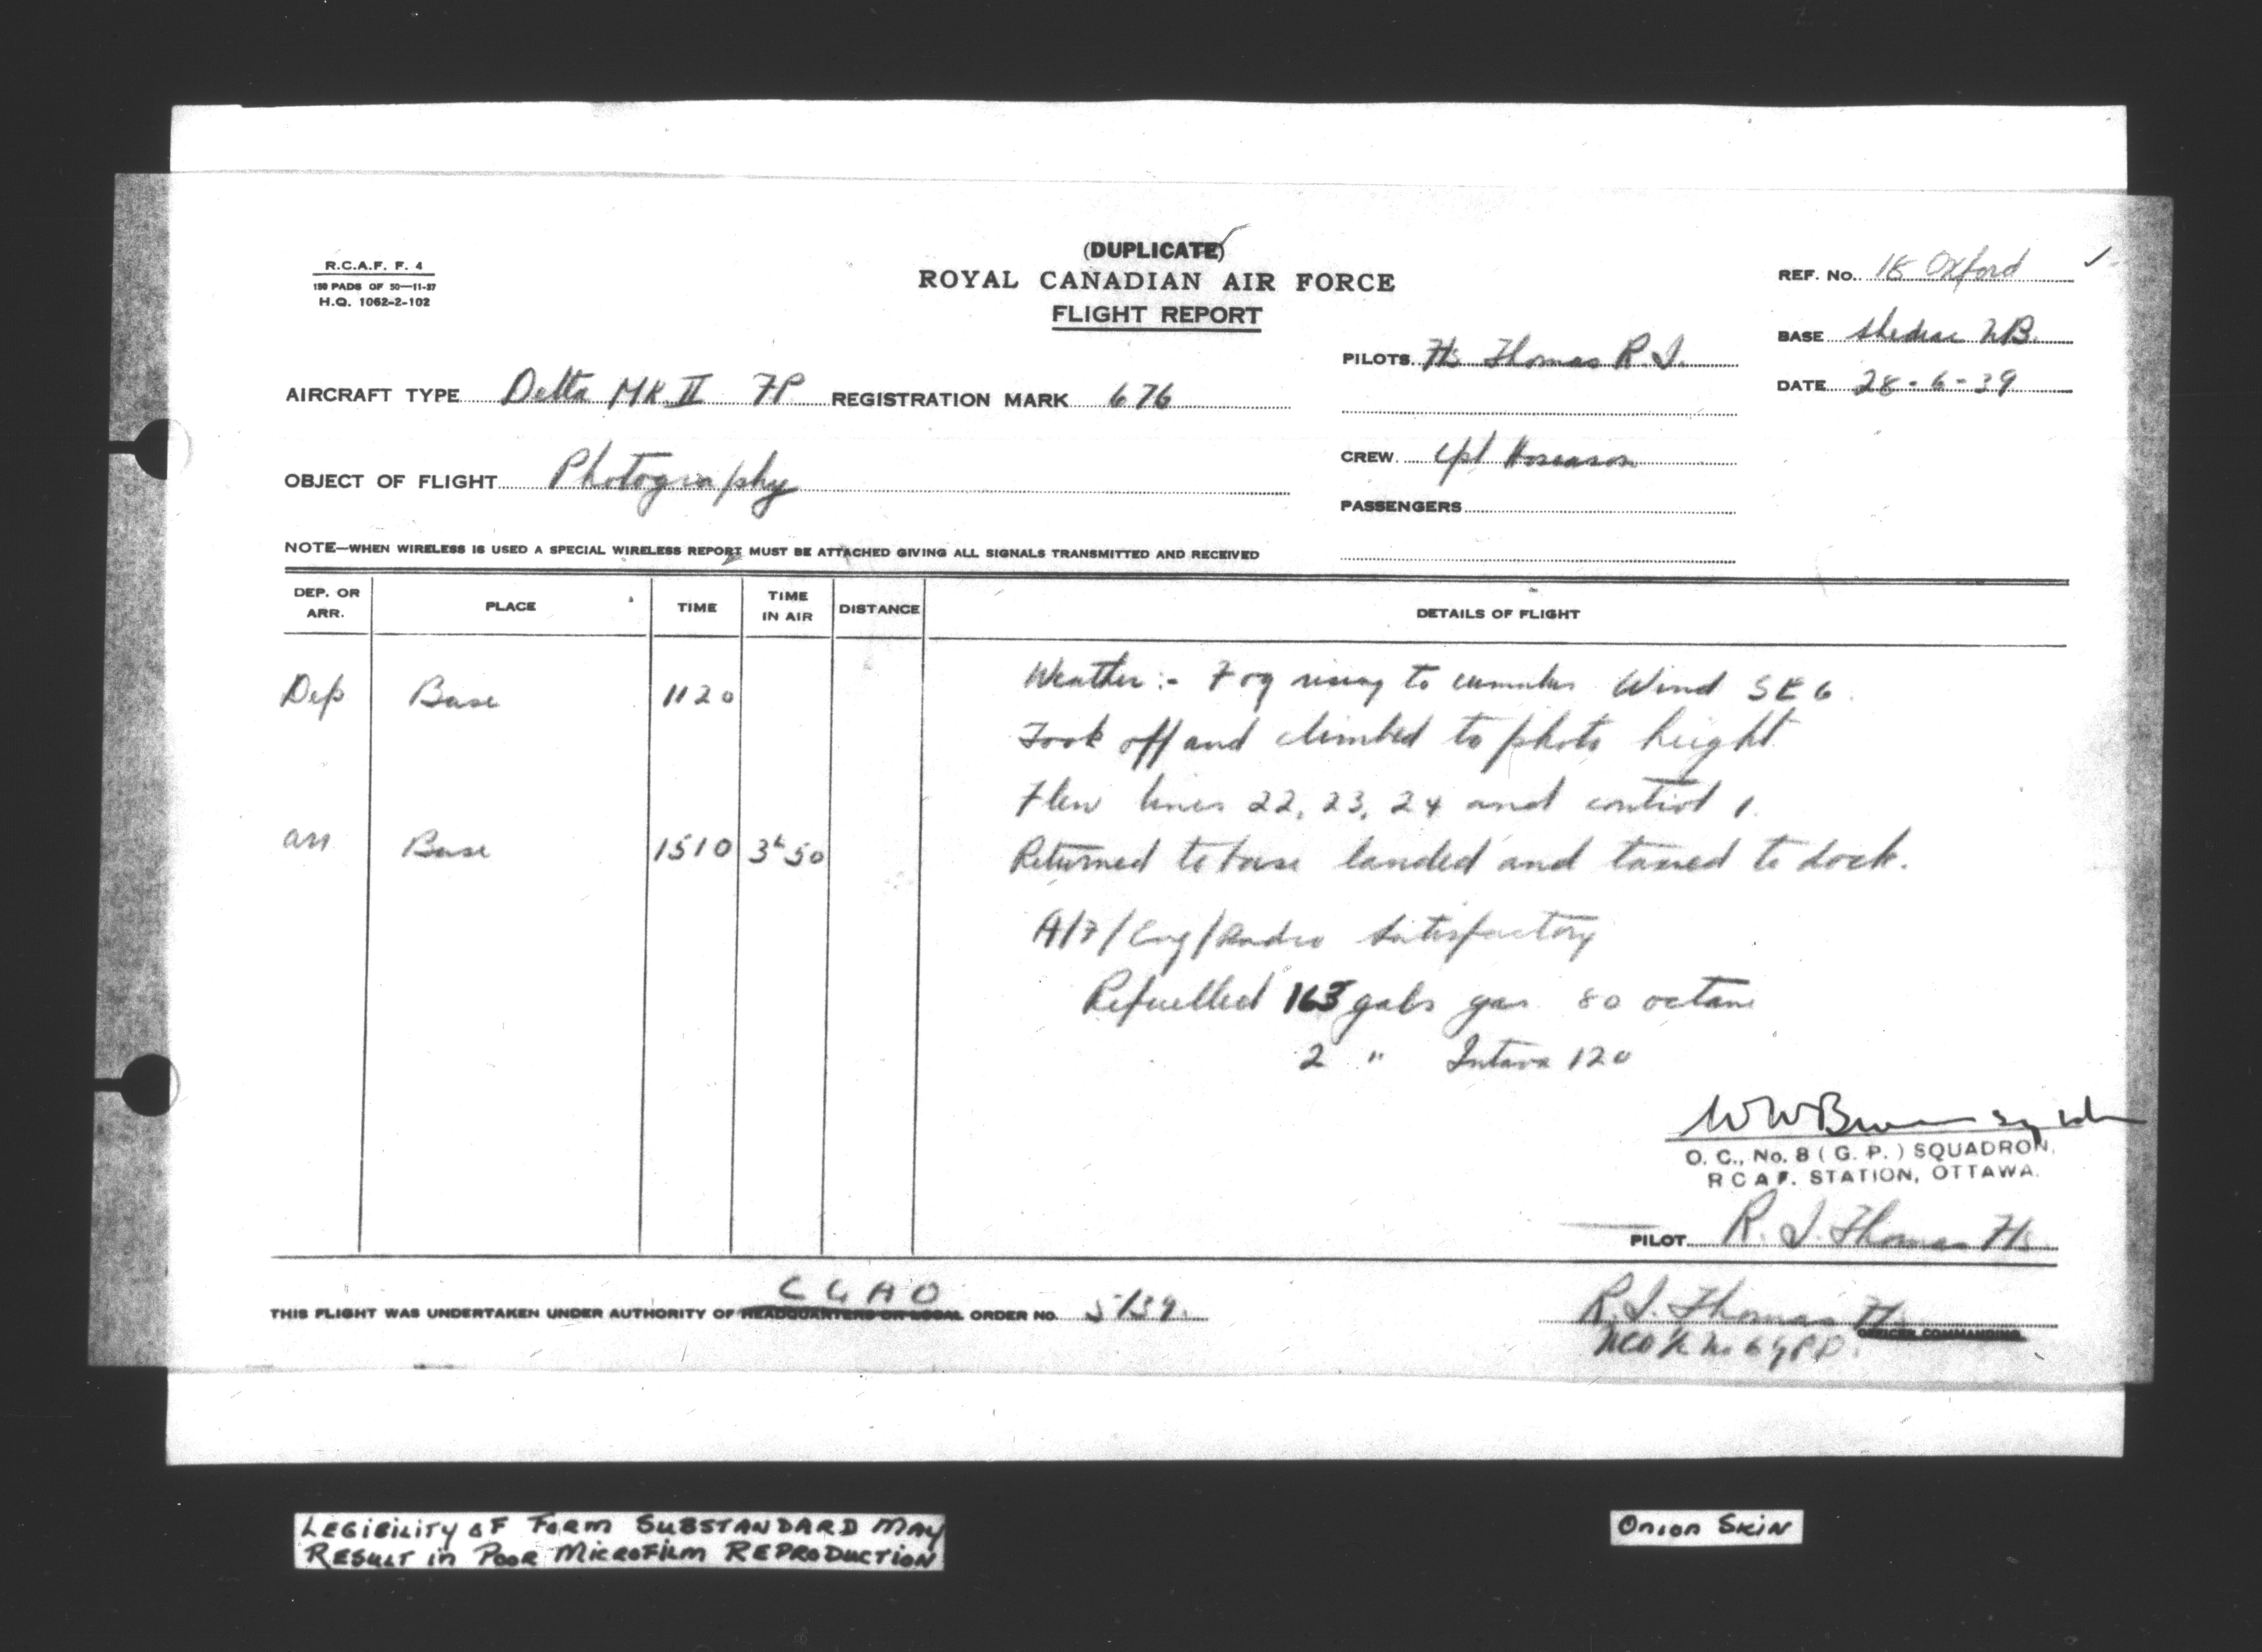 (DUPLICATE)
ROYAL CANADIAN AIR FORCE
FLIGHT REPORT
R.C.A.F. F. 4
150 PADS OF 50—11-37
H.Q. 1062-2-102
REF. No. 18 Oxford
BASE Shediac NB.
DATE 28-6-39
PILOTS Thomas R.I.
AIRCRAFT TYPE Delta MK II FP REGISTRATION MARK 676
CREW Cpl Hoseason
OBJECT OF FLIGHT Photography
PASSENGERS
NOTE—WHEN WIRELESS IS USED A SPECIAL WIRELESS REPORT MUST BE ATTACHED GIVING ALL SIGNALS TRANSMITTED AND RECEIVED
DEP. OR ARR. PLACE TIME TIME IN AIR DISTANCE DETAILS OF FLIGHT
Dep Base 1120 Weather:- Fog rising to cumulus Wind SE 6.
Took off and climbed to photo height
Flew lines 22, 23, 24 and control 1.
Arr Base 1510 3h50 Returned to base landed and taxied to dock.
A/F/Eng/Radio Satisfactory
Refuelled 165 gals gas 80 octane
2 " Intava 120
O. C., No. 8 (G. P.) SQUADRON,
R C A F. STATION, OTTAWA.
PILOT R. I. Thomas
THIS FLIGHT WAS UNDERTAKEN UNDER AUTHORITY OF HEADQUARTERS OR LOCAL CGAO ORDER NO. 5139.
R. I. Thomas
OFFICER COMMANDING
LEGIBILITY OF FORM SUBSTANDARD MAY
RESULT in POOR MICROFILM REPRODUCTION
ONION SKIN